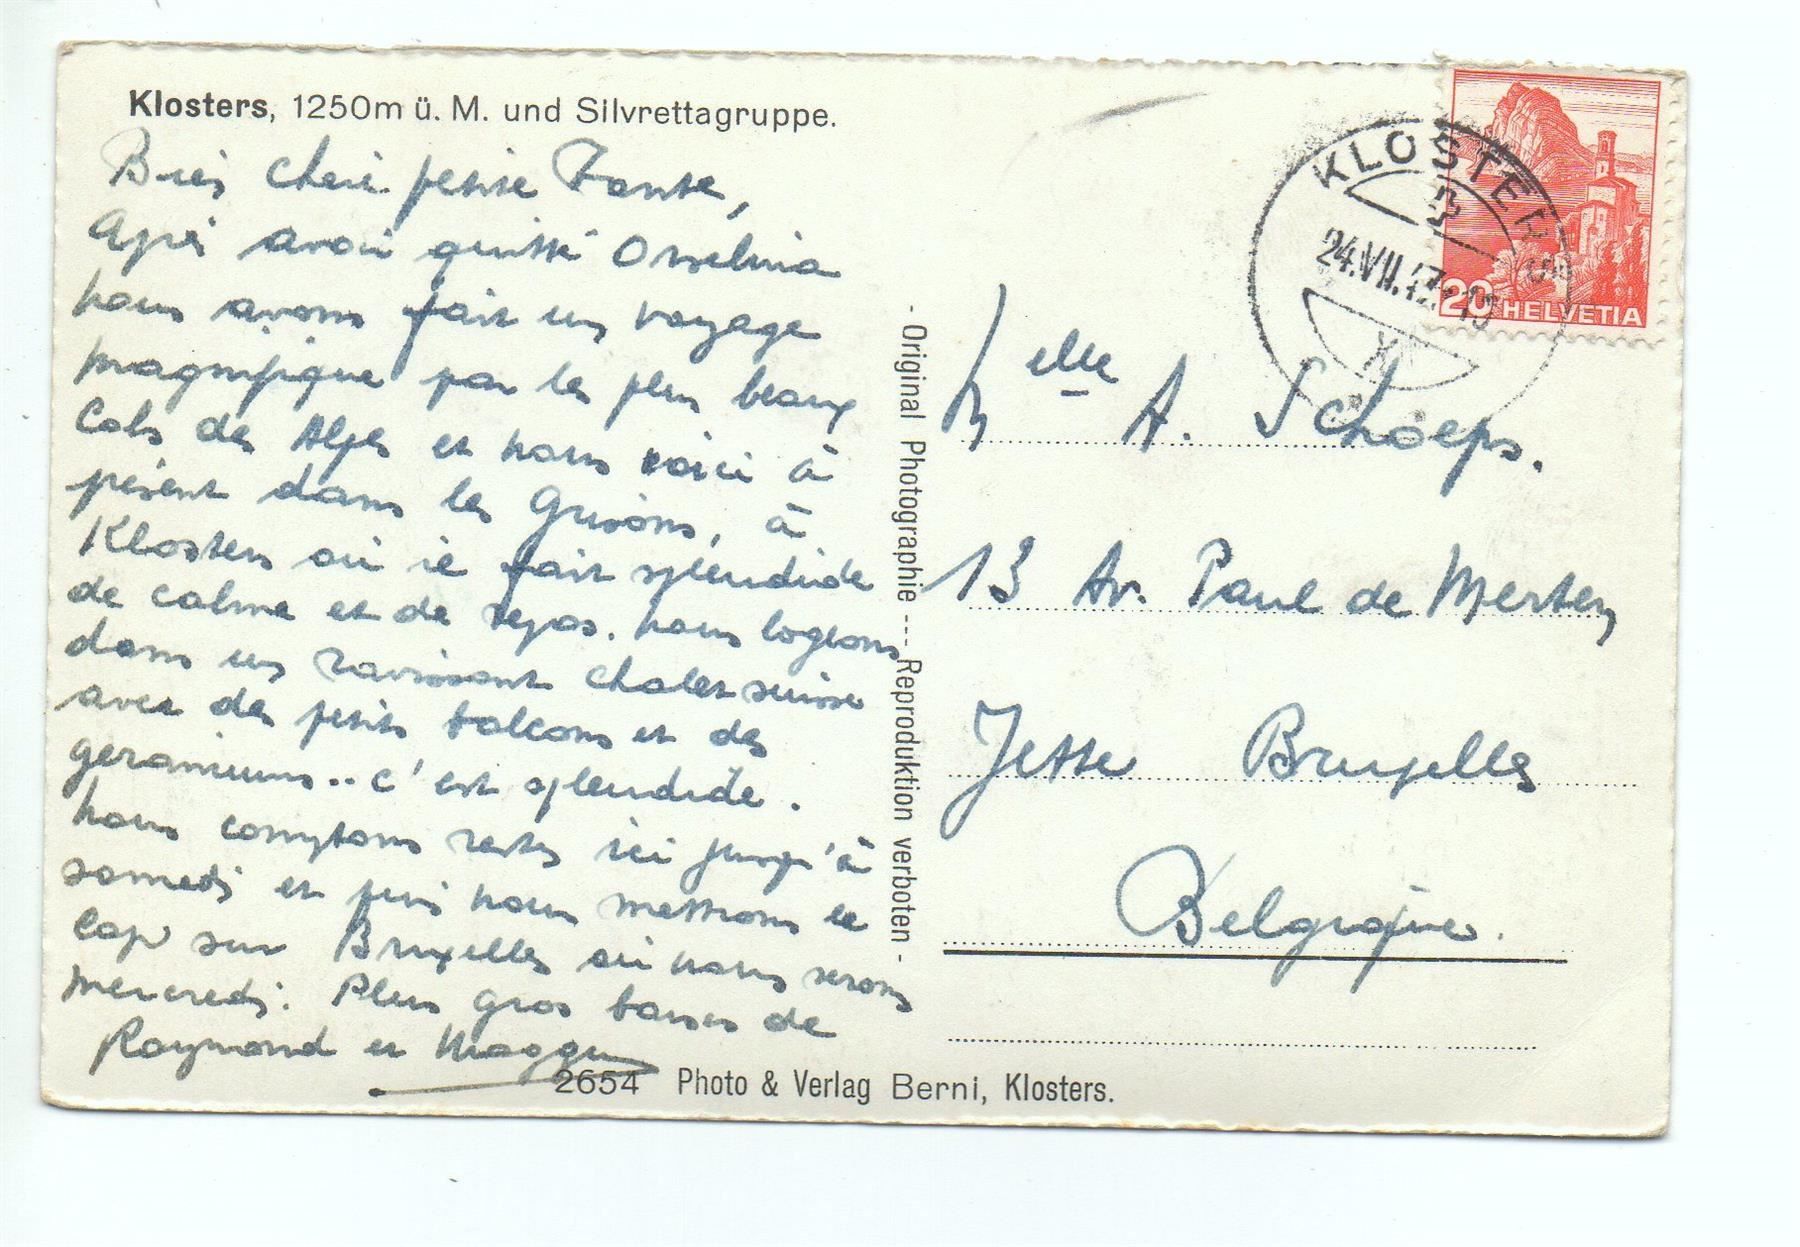 Klosters, 1250m ü. M. und Silvrettagruppe.
Bien chère petite Tante,
Après avoir quitté Orselina
nous avons fait un voyage
magnifique par les plus beaux
Cols des Alpes et nous voici à
présent dans les Grisons, à
Klosters où ie fait splendide
de calme et de repos. nous logeons
dans un ravissant chalet suisse
avec des petits balcons et des
geraniums.. c'est splendide.
nous comptons rester ici jusqu'à
samedi et puis nous mettrons le
cap sur Bruxelles où nous serons
mercredi. Plus gros baisers de
Raymond et Maggy
2654 Photo & Verlag Berni, Klosters.
- Original Photographie --- Reproduktion verboten -
KLOSTERS
24.VII.47
20 HELVETIA
Melle A. Schoeps.
13 Av. Paul de Merten
Jette Bruxelles
Belgique.